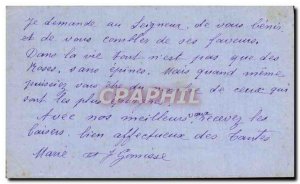 Je demande au Seigneur, de vous bénir
et de vous combler de ses faveurs.
Dans la vie tout n'est pas que des
Roses, sans épines. Mais quand même
puissiez vous être du nombre de ceux qui
sont les plus
CPARAMA
Avec nos meilleurs vœux recevez les
baisers bien affectueux des Tantes
Marie et J